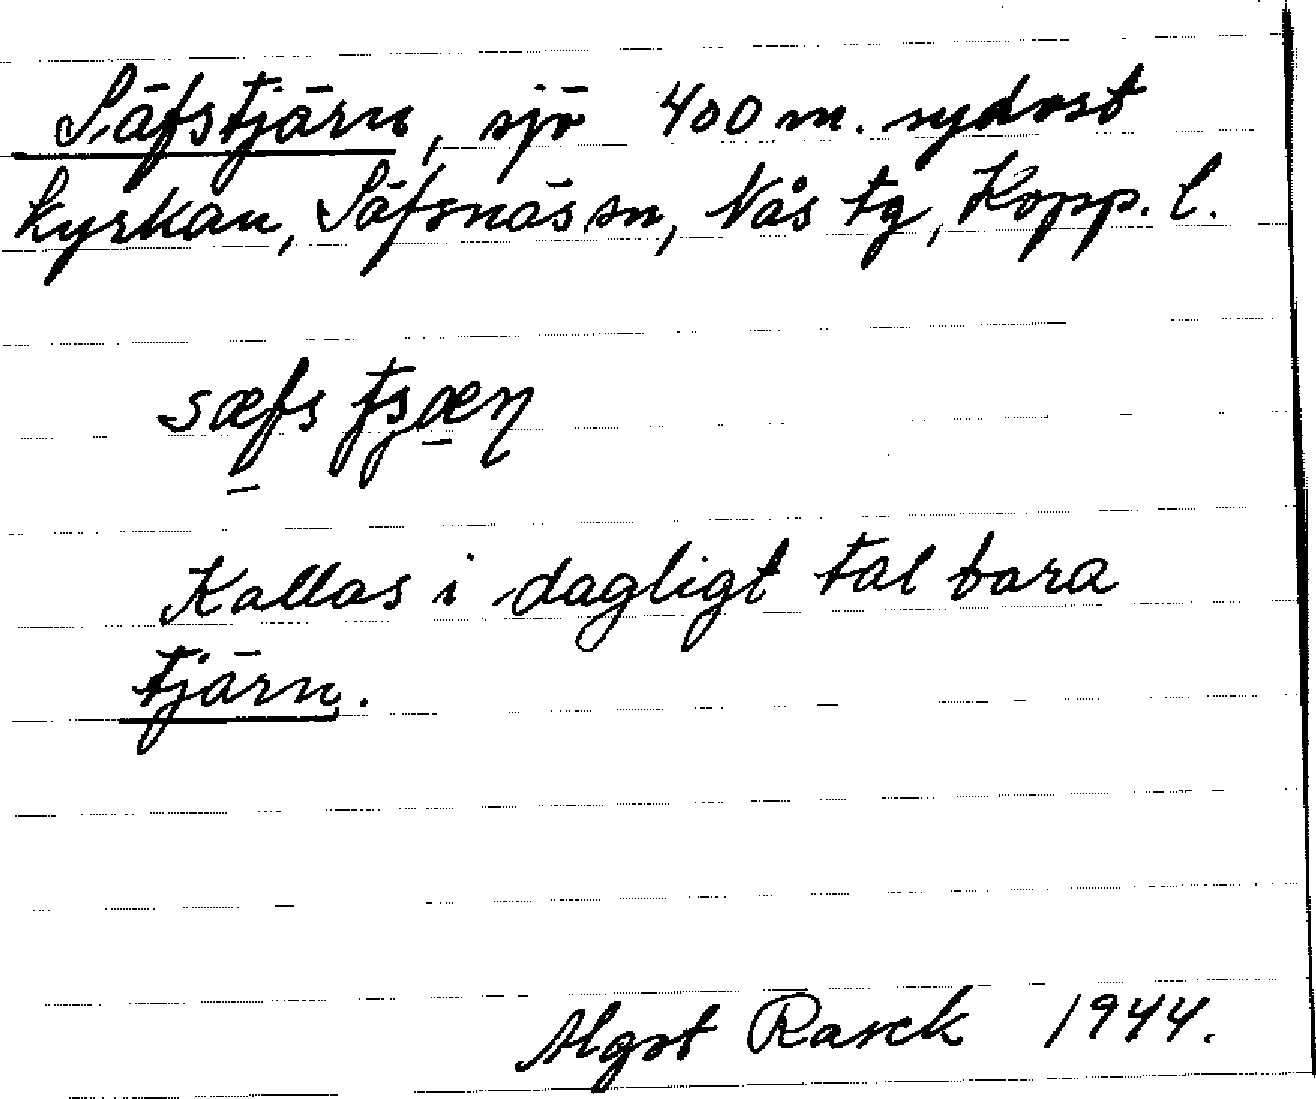 Säfstjärn, sjö 400 m. sydost
kyrkan, Säfsnäs sn, Nås tg, Kopp. l.
sæfs tʂæɳ
Kallas i dagligt tal bara
tjärn.
Algot Rasck 1944.